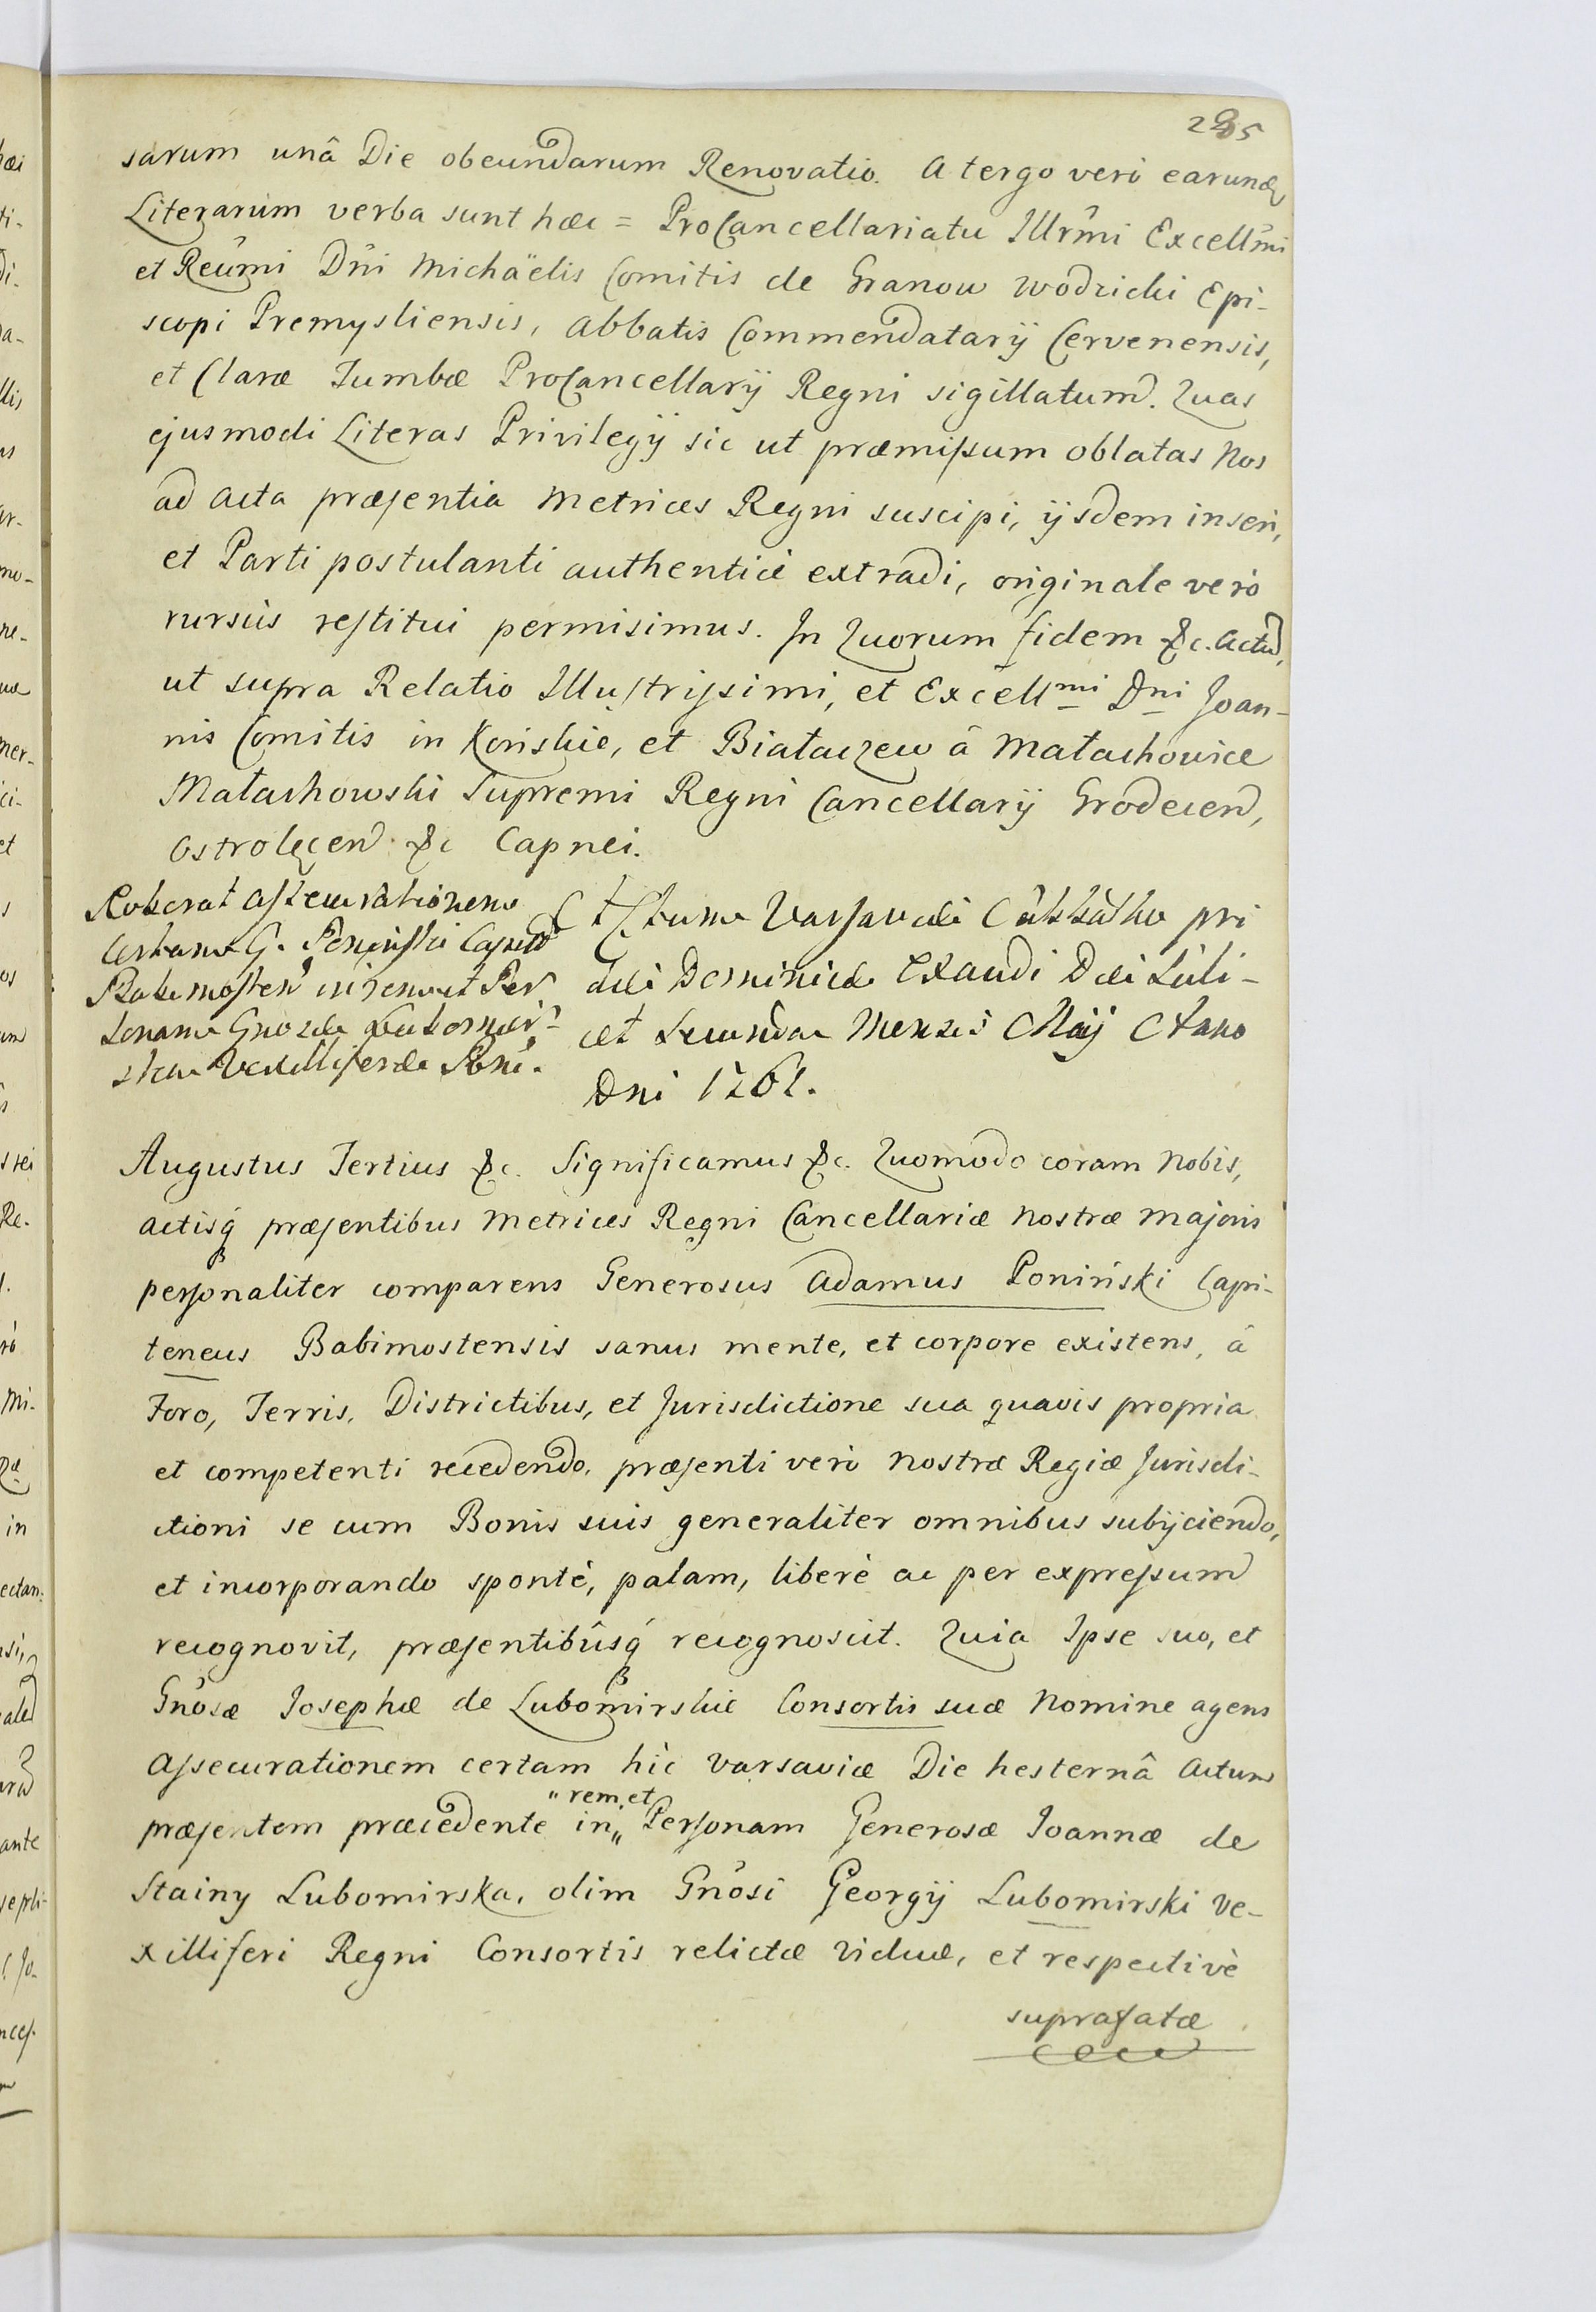 285
sarum unâ Die obeundarum Renovatio. A tergo verò earund
Literarum verba sunt hæc = ProCancellariatu Illrm̃i Excellm̃i
et Reũmi Dñi Michaëlis Comitis de Granow Wodzicki Epi-
scopi Premysliensis, Abbatis Commendatarij Cervenensis,
et Claræ Tumbæ ProCancellarij Regni sigillatum. Quas
ejusmodi Literas Privilegij sic ut præmissum oblatas Nos
ad Acta præsentia Metrices Regni suscipi, ijsdem inseri,
et Parti postulanti authenticè extradi, originale verò
rursùs restitui permisimus. In Quorum fidem &c. Actũ,
ut supra Relatio Illustrissimi, et Excellmi Dni Joan-
nis Comitis in Końskie, et Białaczew â Małachowice
Małachowski Supremi Regni Cancellarij Grodecen,
Ostrolęcen &c Capnei.
Roborat Assecurationem
certam G. Poniński Capnei
Babimosten in rem et Per
sonam Gnosæ Lubomir-
skæ Vexilliferæ Rgni.
Actum Varsaviæ Sabbatho pri
die Dominicæ Exaudi Die scili-
cet secunda Mensis Maij Anno
Dni 1761.
Augustus Tertius &c. Significamus &c. Quomodo coram Nobis,
actisq́ præsentibus Metrices Regni Cancellariæ Nostræ Majoris
personaliter comparens Generosus Adamus Poniński Capi-
teneus Babimostensis sanus mente, et corpore existens, â
Foro, Terris, Districtibus, et Jurisdictione sua quavis propria
et competenti recedendo, præsenti verò Nostræ Regiæ Jurisdi-
ctioni se cum Bonis suis generaliter omnibus subijciendo,
et incorporando spontè, palam, liberè ac per expressum
recognovit, præsentibûsq́ recognoscit. Quia Ipse suo, et
Gnõsæ Josephæ de Lubomirskie Consortis suæ Nomine agens
Assecurationem certam hìc Varsaviæ Die hesternâ Actum
" rem, et
præsentem præcedente in" Personam Generosæ Joannæ de
Stainy Lubomirska, olim Gnõsi Georgij Lubomirski Ve-
xilliferi Regni Consortis relictæ Viduæ, et respectivè
suprafatæ